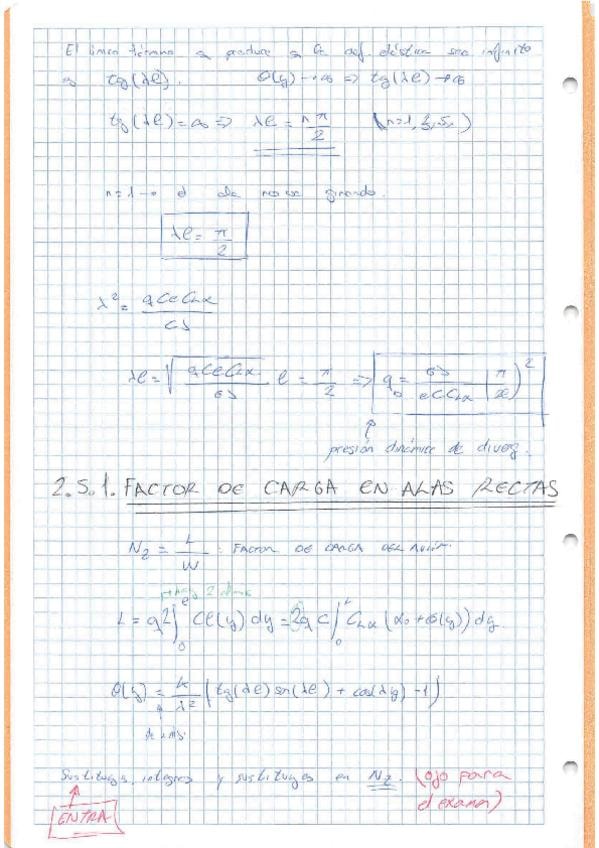 El único término q produce q la def. elástica sea infinito
es tg(λe). θ(y) → ∞ => tg(λe) → ∞
tg(λe) = ∞ => λe = n π/2 (n=1, 3, 5..)
n = 1 → el ala no se girando.
λe = π/2
λ² = qCeCLα / GJ
λe = √(qCeCLα / GJ) e = π/2 => q_D = GJ / eCCLα (π/2e)²
presión dinámica de diverg.
2.5.1. FACTOR DE CARGA EN ALAS RECTAS
Nz = L/W : FACTOR DE CARGA DEL AVIÓN.
hay 2 alas
L = q2∫₀ᵉ Cl(y) dy = 2qC∫₀ᴸ CLα (α₀ + θ(y)) dy
θ(y) = K/λ² (tg(λe) sen(λe) + cos(λy) - 1)
de antes
Sustituyes, integras y sustituyes en Nz. (ojo para
el examen)
ENTRA